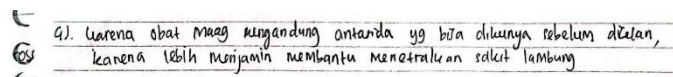 9). Karena obat Maag mengandung antasida yg bisa dikunya sebelum ditelan,
karena lebih menjamin membantu menetralkan sakit lambung